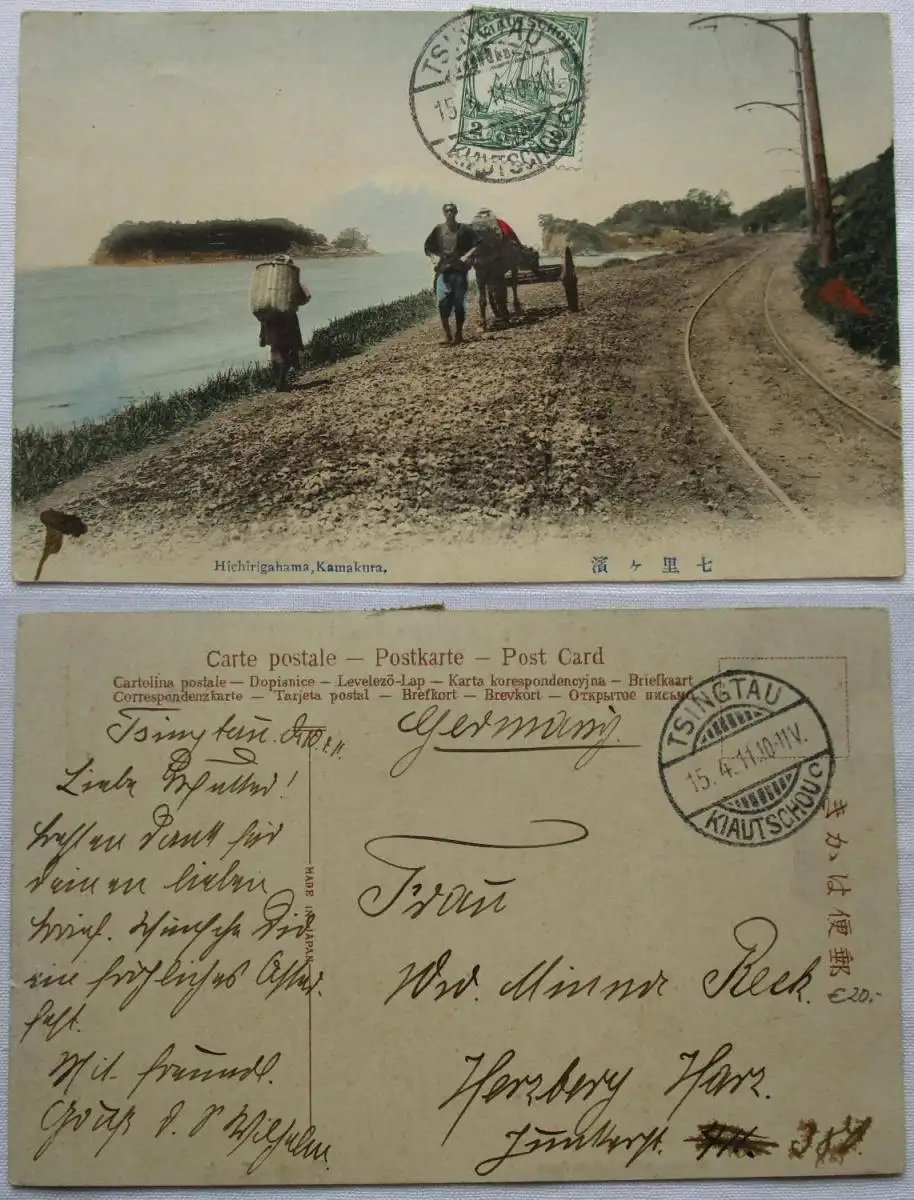 KIAUTSCHOU
TSINGTAU
15.4.11.10-11V.
KIAUTSCHOU
2
Hichirigahama, Kamakura.
七里ヶ濱
Carte postale — Postkarte — Post Card
Cartolina postale — Dopisnice — Levelező-Lap — Karta korespondencyjna — Briefkaart
Correspondenzkarte — Tarjeta postal — Brefkort — Brevkort — Открытое письмо
Tsingtau.
Germany.
TSINGTAU
15.4.11.10-11V.
KIAUTSCHOU
Liebe Mutter!
Besten Dank für
deinen lieben
Brief. Wünsche Dir
ein fröhliches Oster-
fest.
Mit freundl.
Gruß d. S. Wilhelm.
MADE IN JAPAN
Frau
Wwe. Minna Reck.
Herzberg Harz.
Junkerst. 387.
きかは便郵
€20,-